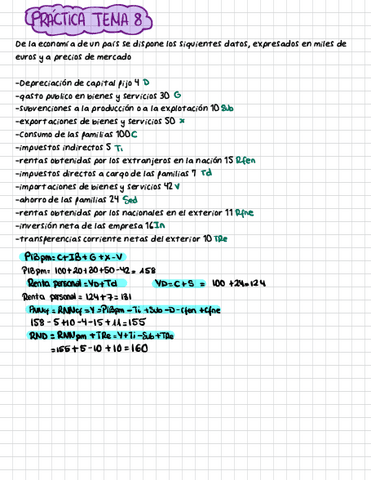 PRÁCTICA TEMA 8
De la economía de un país se dispone los siguientes datos, expresados en miles de
euros y a precios de mercado
-Depreciación de capital fijo 4 D
-gasto público en bienes y servicios 30 G
-subvenciones a la producción o a la explotación 10 Sub
-exportaciones de bienes y servicios 50 x
-Consumo de las familias 100 C
-impuestos indirectos 5 Ti
-rentas obtenidas por los extranjeros en la nación 15 Rfen
-impuestos directos a cargo de las familias 7 Td
-importaciones de bienes y servicios 42 V
-ahorro de las familias 24 Sed
-rentas obtenidas por los nacionales en el exterior 11 Rfne
-inversión neta de las empresa 16 In
-transferencias corriente netas del exterior 10 TRe
PIBpm=C+IB+G+x-V
PIBpm= 100+20+30+50-42=158
Renta personal=YD+Td YD=C+S = 100+24=124
Renta personal=124+7=131
RNNcf=Y=PIBpm-Ti+Sub-D-rfen+rfne
158-5+10-4-15+11=155
RND=RNNpm+TRe=Y+Ti-Sub+TRe
=155+5-10+10=160